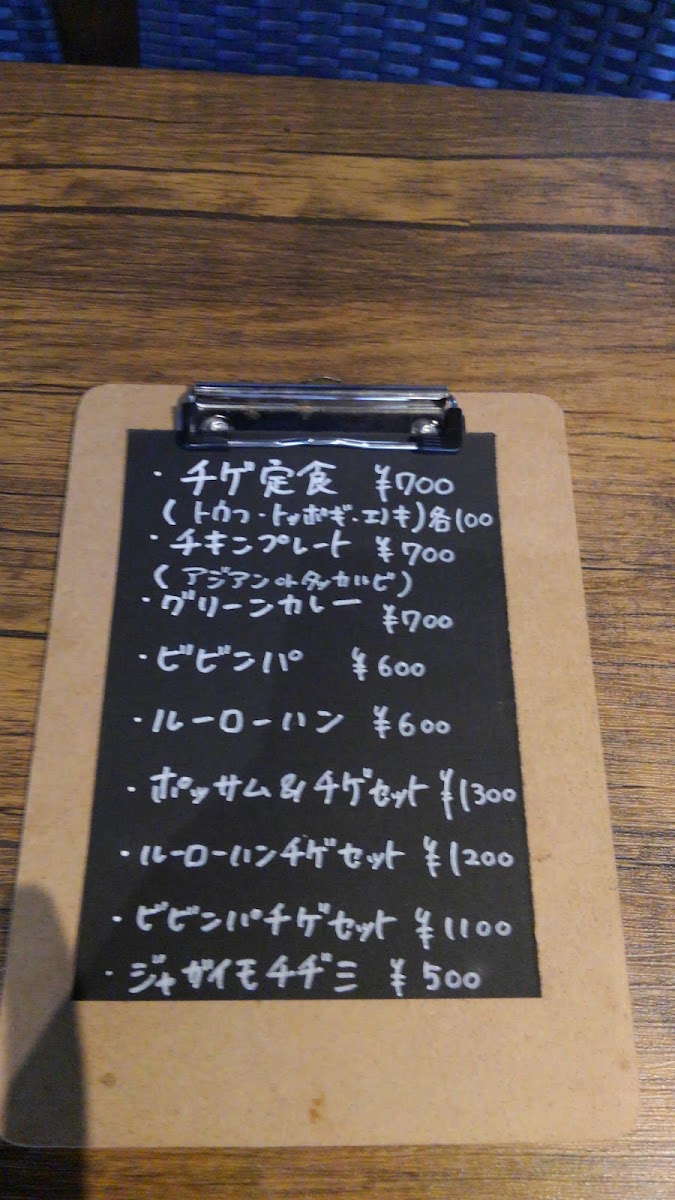 ・チゲ定食 ¥700
(トウフ・トッポギ・エノキ)各100
・チキンプレート ¥700
(アジアンorタッカルビ)
・グリーンカレー ¥700
・ビビンパ ¥600
・ルーローハン ¥600
・ポッサム&チゲセット ¥1300
・ルーローハンチゲセット ¥1200
・ビビンパチゲセット ¥1100
・ジャガイモチヂミ ¥500